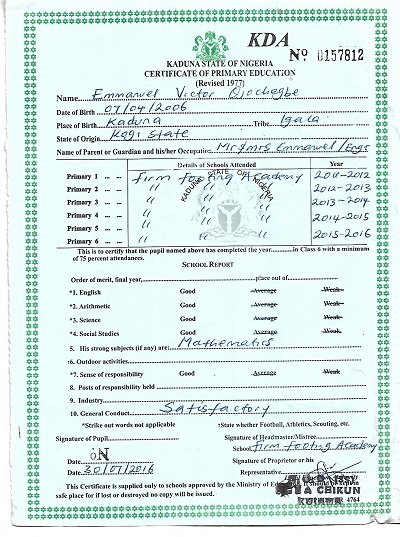 KDA
KADUNA STATE OF NIGERIA
No 0157812
CERTIFICATE OF PRIMARY EDUCATION
(Revised 1977)
Name Emmanuel Victor Ojochegbe
Date of Birth 07/04/2006
Place of Birth Kaduna Tribe Igala
State of Origin Kogi State
Name of Parent or Guardian and his/her Occupation Mr & Mrs Emmanuel/Engs
Details of Schools Attended Year
Primary 1 firm footing Academy 2011-2012
Primary 2 " " " 2012-2013
Primary 3 " " " 2013-2014
Primary 4 " " " 2014-2015
Primary 5 " " "
Primary 6 " " " 2015-2016
KADUNA STATE OF NIGERIA
This is to certify that the pupil named above has completed the year in Class 6 with a minimum
of 75 percent attendances.
SCHOOL REPORT
Order of merit, final year, place out of
*1. English Good Average Weak
*2. Arithmetic Good Average Weak
*3. Science Good Average Weak
*4. Social Studies Good Average Weak
5. His strong subjects (if any) are: Mathematics
†6. Outdoor activities
*7. Sense of responsibility Good Average Weak
8. Posts of responsibility held
9. Industry
10. General Conduct Satisfactory
*Strike out words not applicable †State whether Football, Athletics, Scouting, etc.
Signature of Pupil Signature of Headmaster/Mistree
School firm footing Academy
ON Signature of Proprietor or his
Date 30/07/2016 Representative
This Certificate is supplied only to schools approved by the Ministry of
safe place for if lost or destroyed no copy will be issued.
CHIKUN
4764